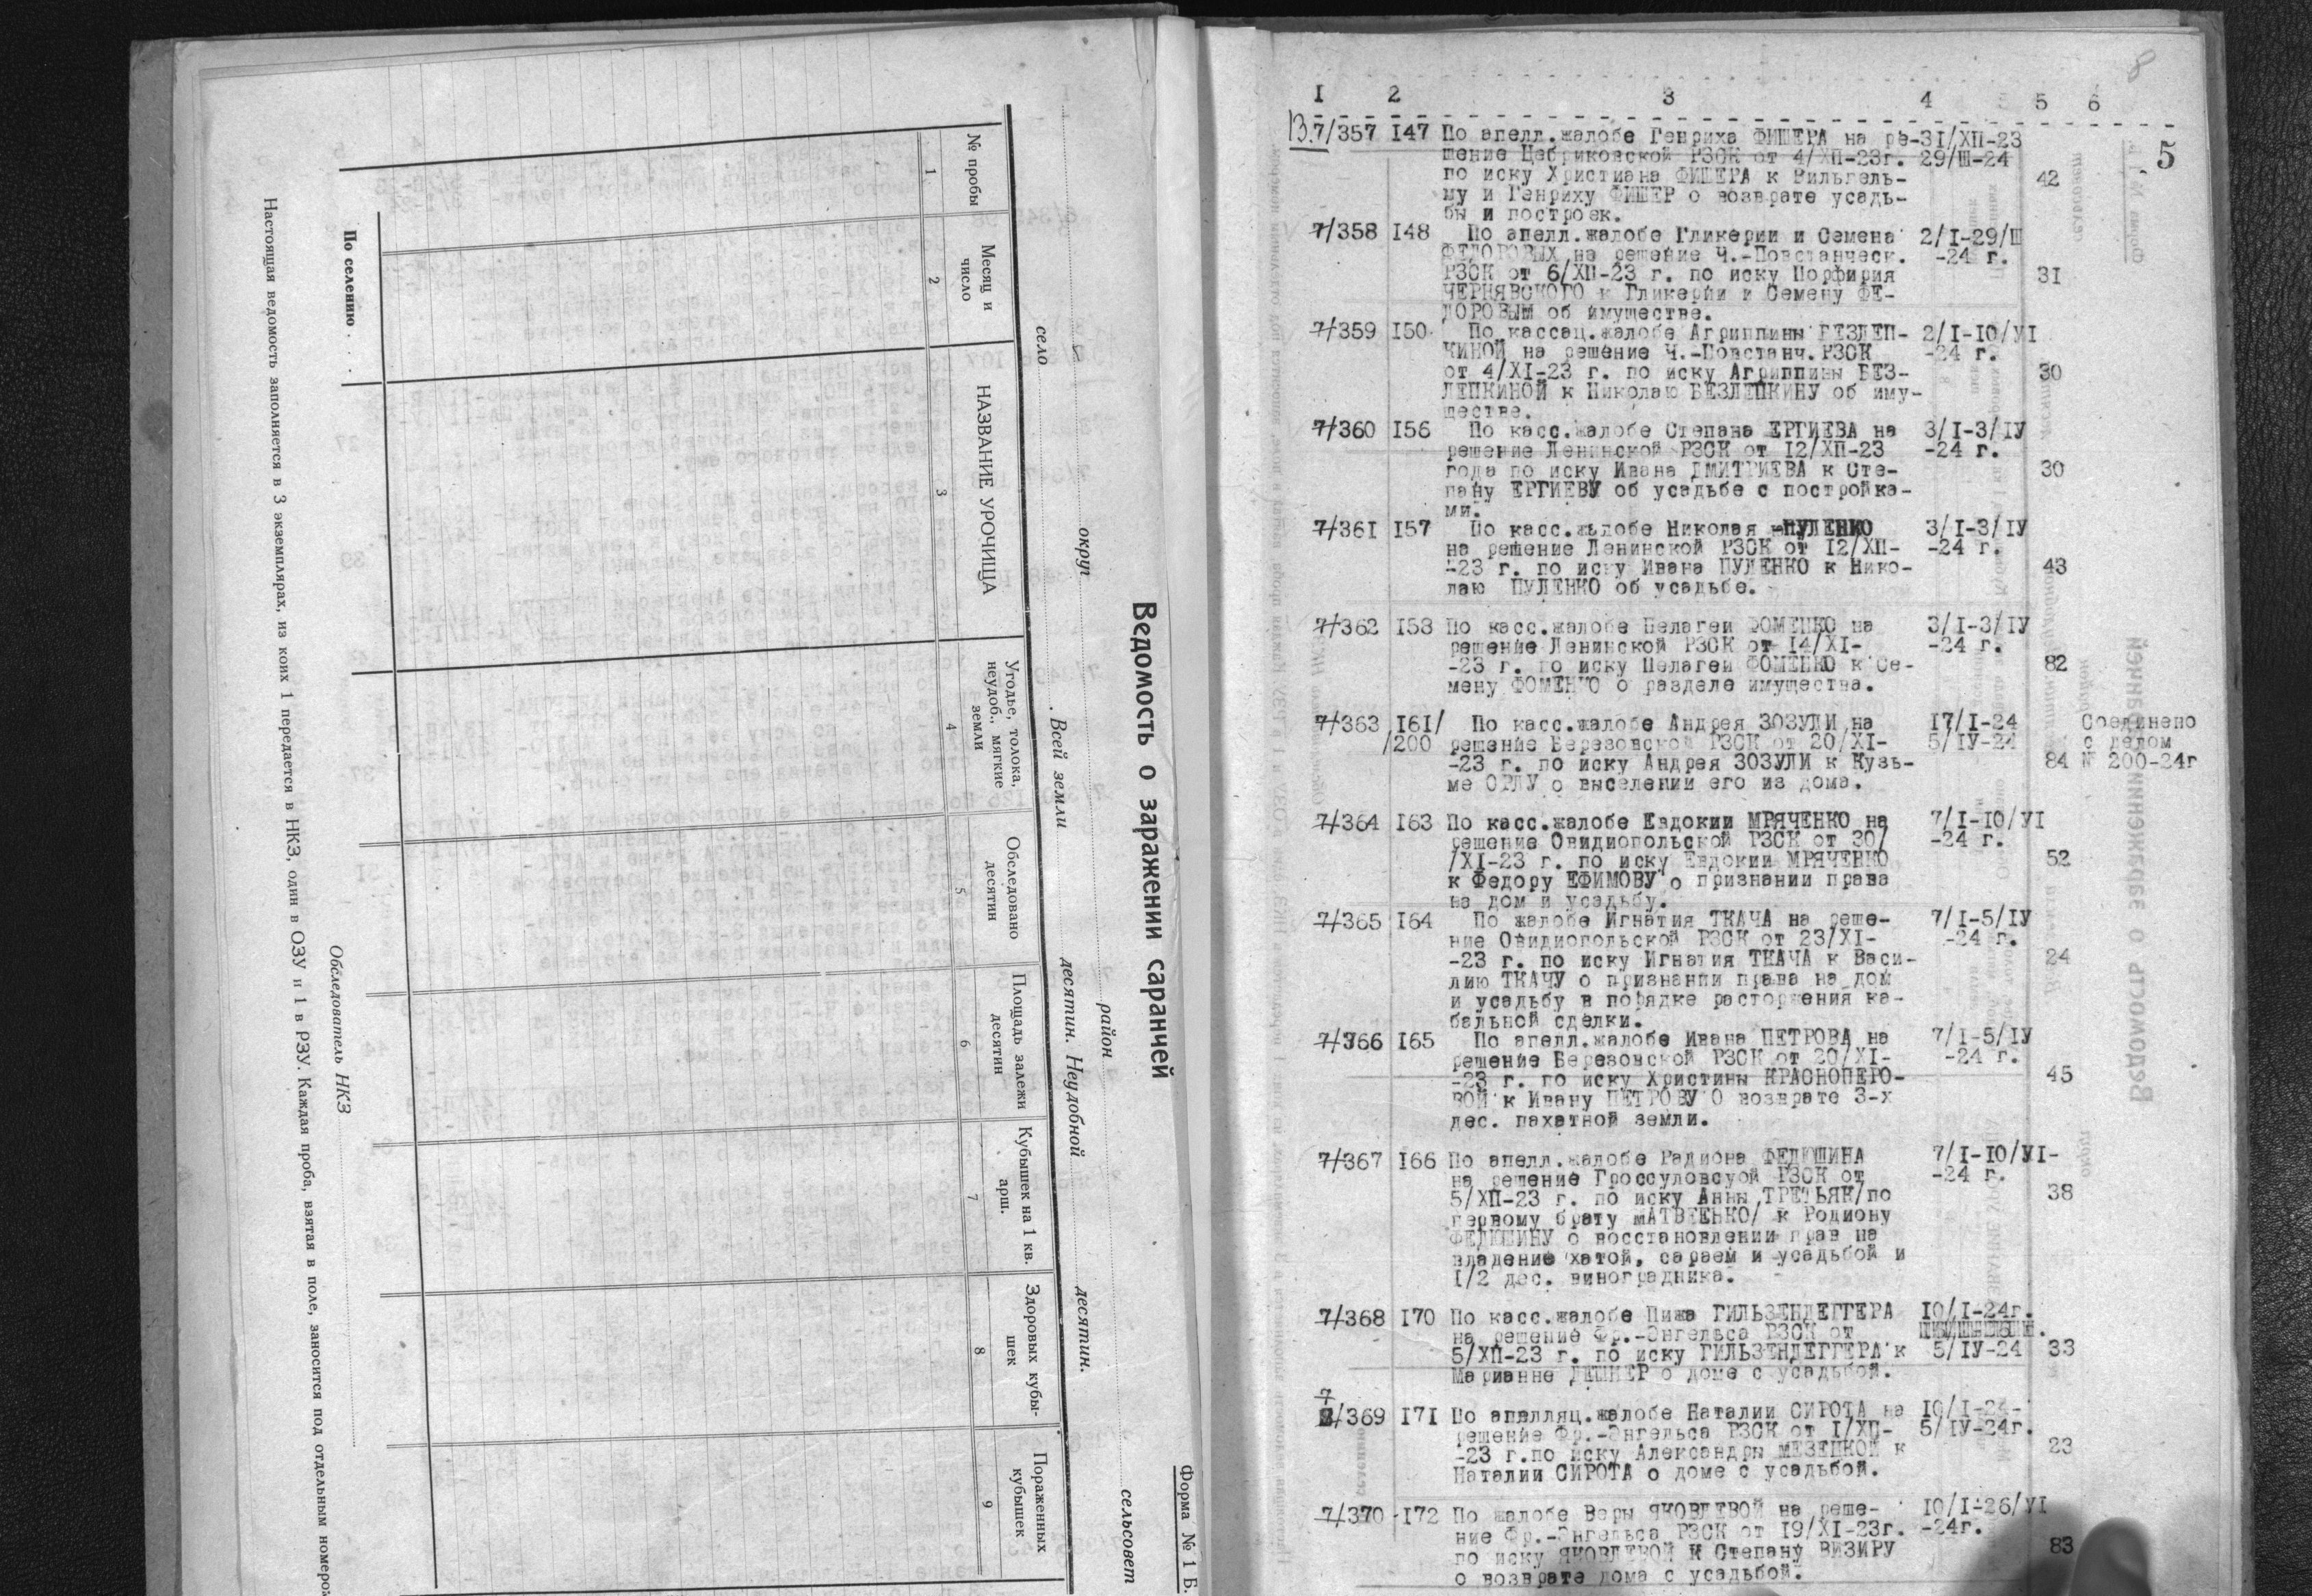 Форма № 1 Б.
Ведомость о заражении саранчей
округ район сельсовет
село Всей земли десятин. Неудобной десятин.
№ пробы
Месяц и число
НАЗВАНИЕ УРОЧИЩА
Угодье, толока, неудоб., мягкие земли
Обследовано десятин
Площадь залежи десятин
Кубышек на 1 кв. арш.
Здоровых кубышек
Пораженных кубышек
1 2 3 4 5 6 7 8 9
По селению . . .
Обследователь НКЗ
Настоящая ведомость заполняется в 3 экземплярах, из коих 1 передается в НКЗ, один в ОЗУ и 1 в РЗУ. Каждая проба, взятая в поле, заносится под отдельным номером
8
I 2 3 4 5 6
5
13.7/357 I47 По апелл.жалобе Генриха ФИШЕРА на ре- 3I/ХП-23
шение Цебриковской РЗСК от 4/ХП-23г. 29/Ш-24
по иску Христиана ФИШЕРА к Вильгель- 42
му и Генриху ФИШЕР о возврате усадь-
бы и построек.
7/358 I48 По апелл.жалобе Гликерии и Семена 2/I-29/Ш
ФЕДОРОВЫХ на решение Ч.-Повстанческ. -24 г.
РЗСК от 6/ХП-23 г. по иску Порфирия 3I
ЧЕРНЯВСКОГО к Гликерии и Семену ФЕ-
ДОРОВЫМ об имуществе.
7/359 I50 По кассац.жалобе Агриппины БЕЗЛЕП- 2/I-I0/УI
КИНОЙ на решение Ч.-Повстанч.РЗСК -24 г.
от 4/ХI-23 г. по иску Агриппины БЕЗ- 30
ЛЕПКИНОЙ к Николаю БЕЗЛЕПКИНУ об иму-
ществе.
7/360 I56 По касс.жалобе Степана ЕРГИЕВА на 3/I-3/IУ
решение Ленинской РЗСК от I2/ХП-23 -24 г.
года по иску Ивана ДМИТРИЕВА к Сте- 30
пану ЕРГИЕВУ об усадьбе с постройка-
ми.
7/36I I57 По касс.жалобе Николая ПУЛЕНКО 3/I-3/IУ
на решение Ленинской РЗСК от I2/ХП- -24 г.
-23 г. по иску Ивана ПУЛЕНКО к Нико- 43
лаю ПУЛЕНКО об усадьбе.
7/362 I58 По касс.жалобе Пелагеи ФОМЕНКО на 3/I-3/IУ
решение Ленинской РЗСК от I4/ХI- -24 г.
-23 г. по иску Пелагеи ФОМЕНКО к Се- 82
мену ФОМЕНКО о разделе имущества.
7/363 I6I/ По касс.жалобе Андрея ЗОЗУЛИ на I7/I-24 Соединено
/200 решение Березовской РЗСК от 20/ХI- 5/IУ-24 с делом
-23 г. по иску Андрея ЗОЗУЛИ к Кузь- 84 № 200-24г
ме ОРЛУ о выселении его из дома.
7/364 I63 По касс.жалобе Евдокии МРЯЧЕНКО на 7/I-I0/УI
решение Овидиопольской РЗСК от 30/ -24 г.
/ХI-23 г. по иску Евдокии МРЯЧЕНКО 52
к Федору ЕФИМОВУ о признании права
на дом и усадьбу.
7/365 I64 По жалобе Игнатия ТКАЧА на реше- 7/I-5/IУ
ние Овидиопольской РЗСК от 23/ХI- -24 г.
-23 г. по иску Игнатия ТКАЧА к Васи- 24
лию ТКАЧУ о признании права на дом
и усадьбу в порядке расторжения ка-
бальной сделки.
7/366 I65 По апелл.жалобе Ивана ПЕТРОВА на 7/I-5/IУ
решение Березовской РЗСК от 20/ХI- -24 г.
-23 г. по иску Христины КРАСНОПЕРО- 45
ВОЙ к Ивану ПЕТРОВУ О возврате 3-х
дес. пахатной земли.
7/367 I66 По апелл.жалобе Радиона ФЕДЮШИНА 7/I-I0/УI-
на решение Гроссуловсуой РЗСК от -24 г.
5/ХП-23 г. по иску Анны ТРЕТЬЯК/по 38
первому брату МАТВЕЕНКО/ к Родиону
ФЕДЮШИНУ о восстановлении прав на
владение хатой, сараем и усадьбой и
I/2 дес. виноградника.
7/368 I70 По касс.жалобе Пижа ГИЛЬЗЕНДЕГГЕРА I0/I-24г.
на решение Фр.-Энгельса РЗСК от
5/ХП-23 г. по иску ГИЛЬЗЕНДЕГГЕРА к 5/IУ-24 33
Марианне ДЕШНЕР о доме с усадьбой.
7/369 I7I По апелляц.жалобе Наталии СИРОТА на I0/I-24-
решение Фр.-Энгельса РЗСК от I/ХП- 5/IУ-24г.
-23 г.по иску Александры МЕЗЕЦКОЙ к 23
Наталии СИРОТА о доме с усадьбой.
7/370 I72 По жалобе Веры ЯКОВЛЕВОЙ на реше- I0/I-26/УI
ние Фр.-Энгельса РЗСК от I9/ХI-23г. -24г.
по иску ЯКОВЛЕВОЙ К Степану ВИЗИРУ 83
о возврате дома с усадьбой.